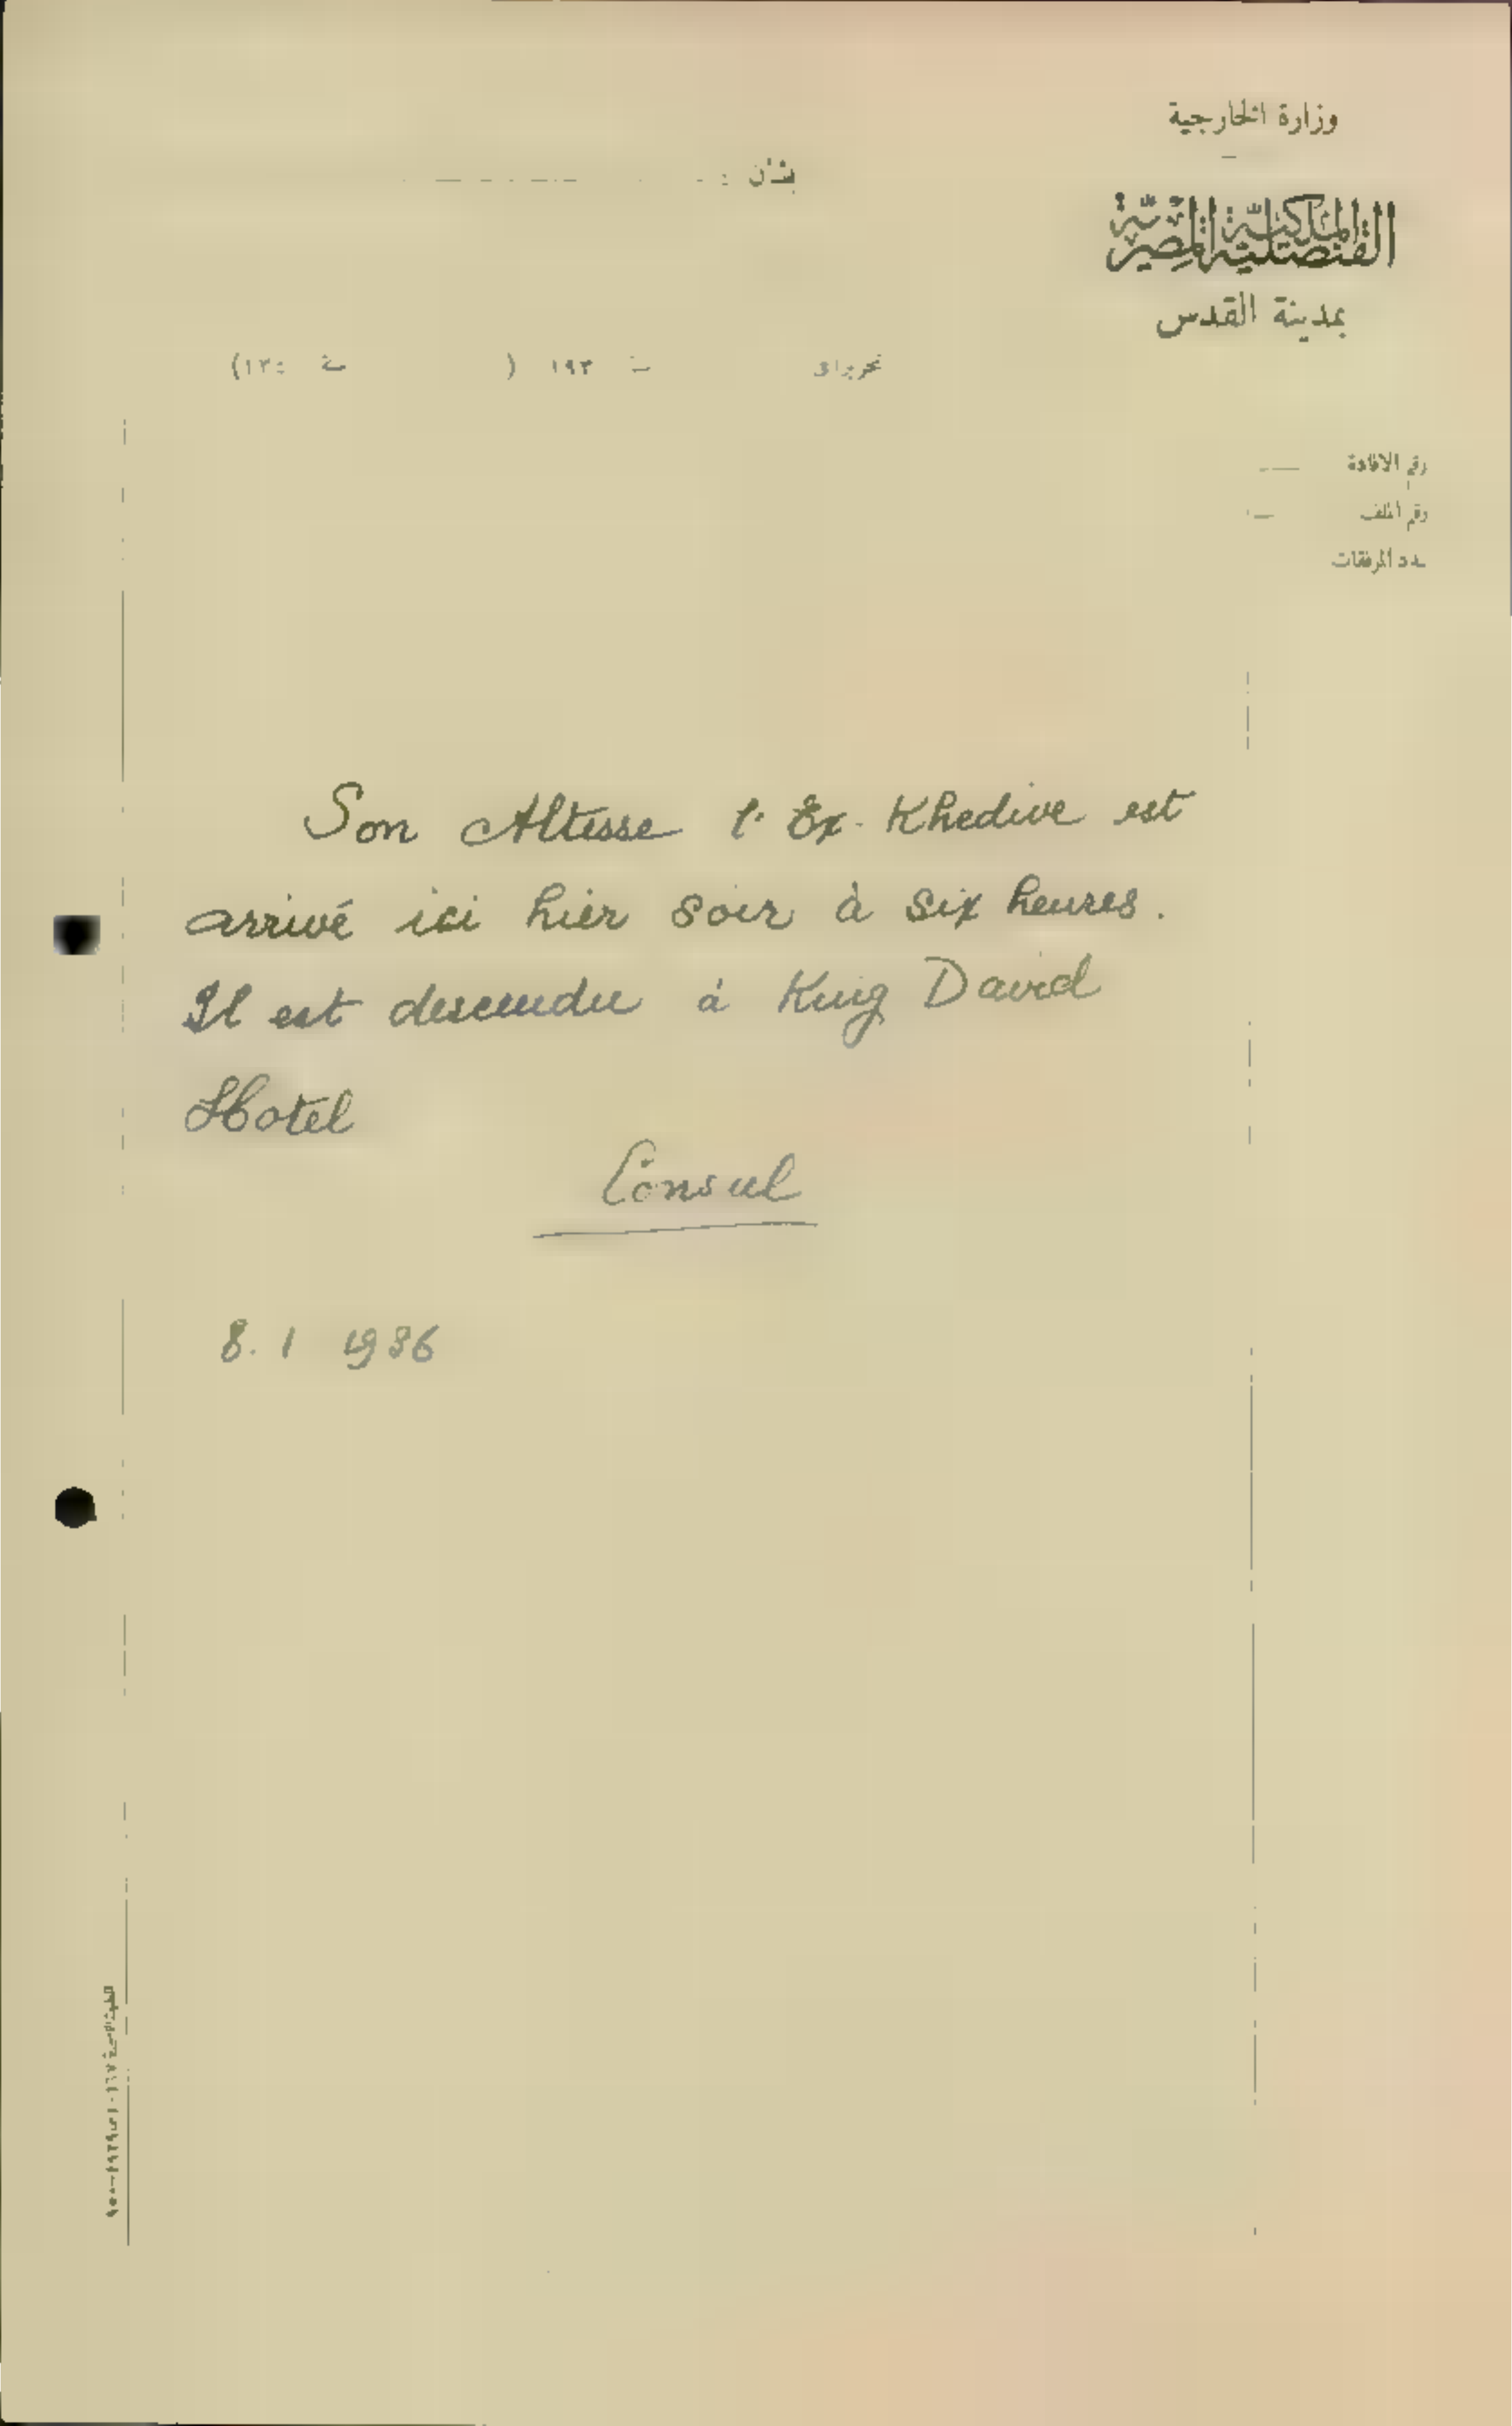 وزارة الخارجية
القنصلية الملكية المصرية
بمدينة القدس
بشأن :
تحريرا في سنة ١٩٣ ( سنة ١٣٥ )
رقم الافادة
رقم الملف
عدد المرفقات
Son Altesse l'Ex-Khedive est
arrivé ici hier soir à six heures.
Il est descendu à King David
Hotel
Consul
8. 1 1936